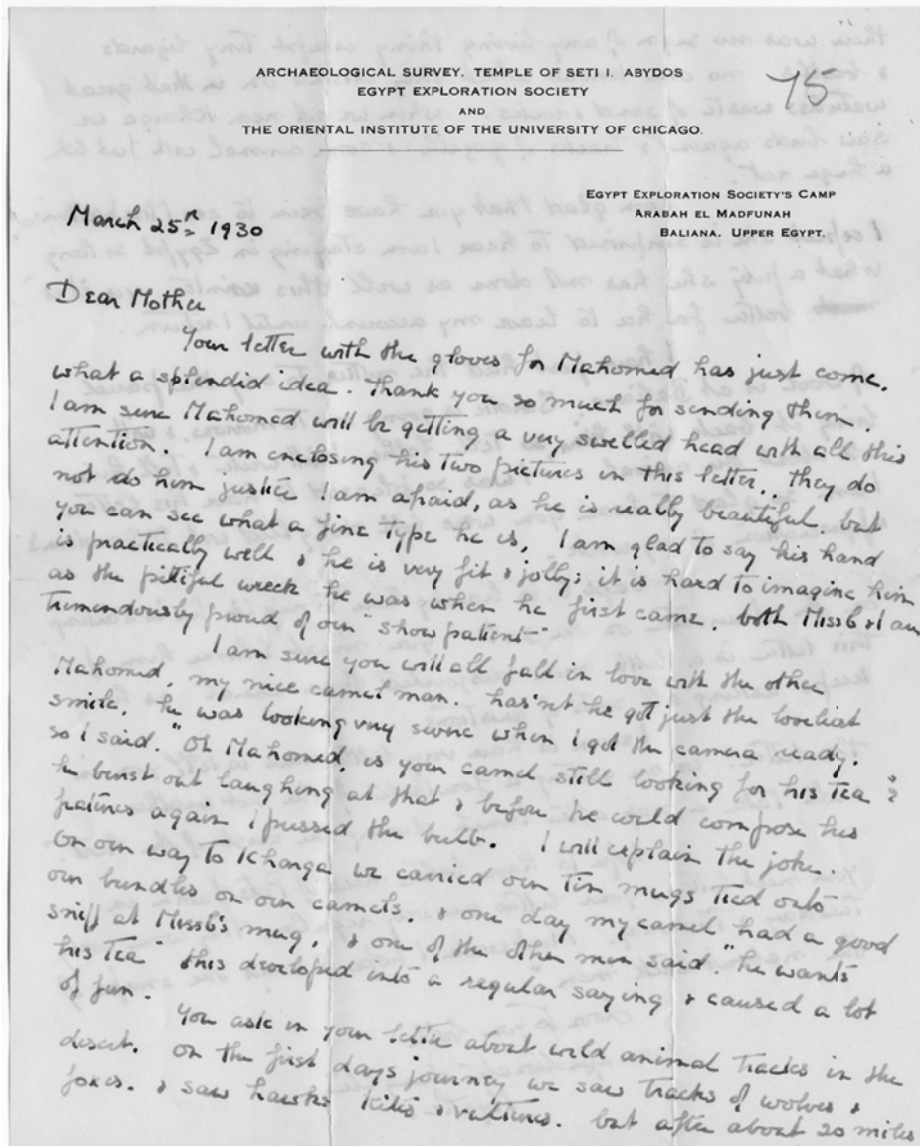 ARCHAEOLOGICAL SURVEY, TEMPLE OF SETI I. ABYDOS
EGYPT EXPLORATION SOCIETY
AND
THE ORIENTAL INSTITUTE OF THE UNIVERSITY OF CHICAGO.
75
EGYPT EXPLORATION SOCIETY'S CAMP
ARABAH EL MADFUNAH
BALIANA. UPPER EGYPT.
March 25th 1930
Dear Mother
Your letter with the gloves for Mahomed has just come.
what a splendid idea. thank you so much for sending them.
I am sure Mahomed will be getting a very swelled head with all this
attention. I am enclosing his two pictures in this letter,. they do
not do him justice I am afraid, as he is really beautiful. but
you can see what a fine type he is, I am glad to say his hand
is practically well & he is very fit & jolly; it is hard to imagine him
as the pitiful wreck he was when he first came. both Miss C & I am
tremendously proud of our "show patient"
I am sure you will all fall in love with the other
Mahomed, my nice camel man. hasn't he got just the loveliest
smile. he was looking very severe when I got the camera ready.
so I said. "Oh Mahomed, is your camel still looking for his tea?
he burst out laughing at that & before he could compose his
features again I pressed the bulb. I will explain the joke.
On our way to Kharga we carried our tin mugs tied onto
our bundles on our camels. & one day my camel had a good
sniff at Miss C's mug, & one of the other men said "he wants
his tea" this developed into a regular saying & caused a lot
of fun.
You ask in your letter about wild animal tracks in the
desert. on the first days journey we saw tracks of wolves &
foxes. & saw hawks kites & vultures. but after about 20 miles